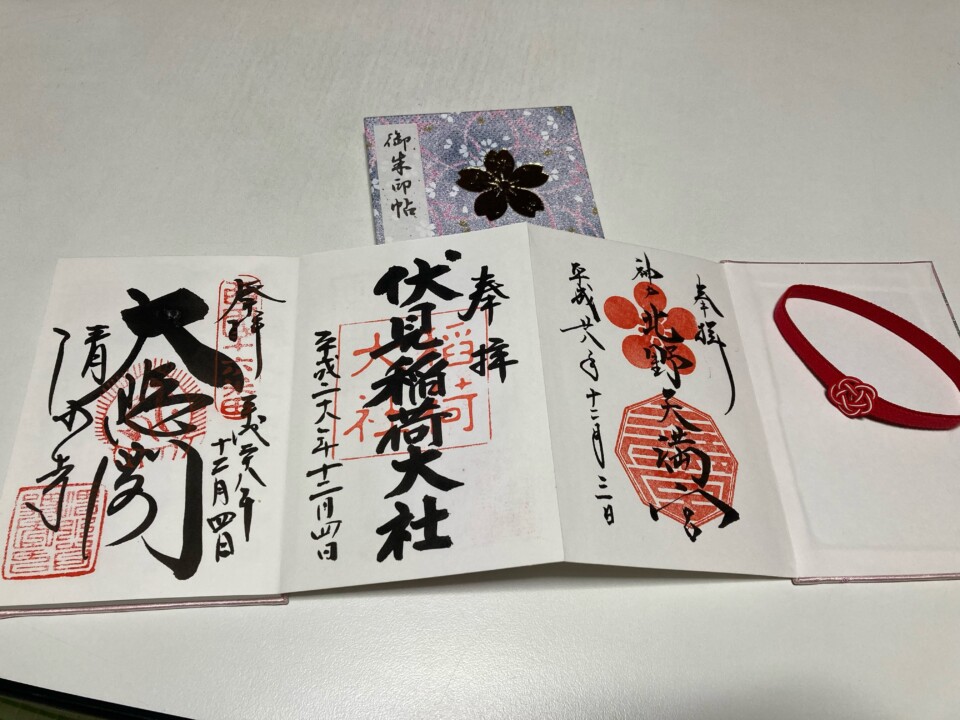 御朱印帖
奉拝
神戸北野天満宮
平成廿八年十二月三日
奉拝
伏見稲荷大社
平成二十八年十二月四日
稲荷
大社
奉拝
平成廿八年
十二月四日
大悲閣
清水寺